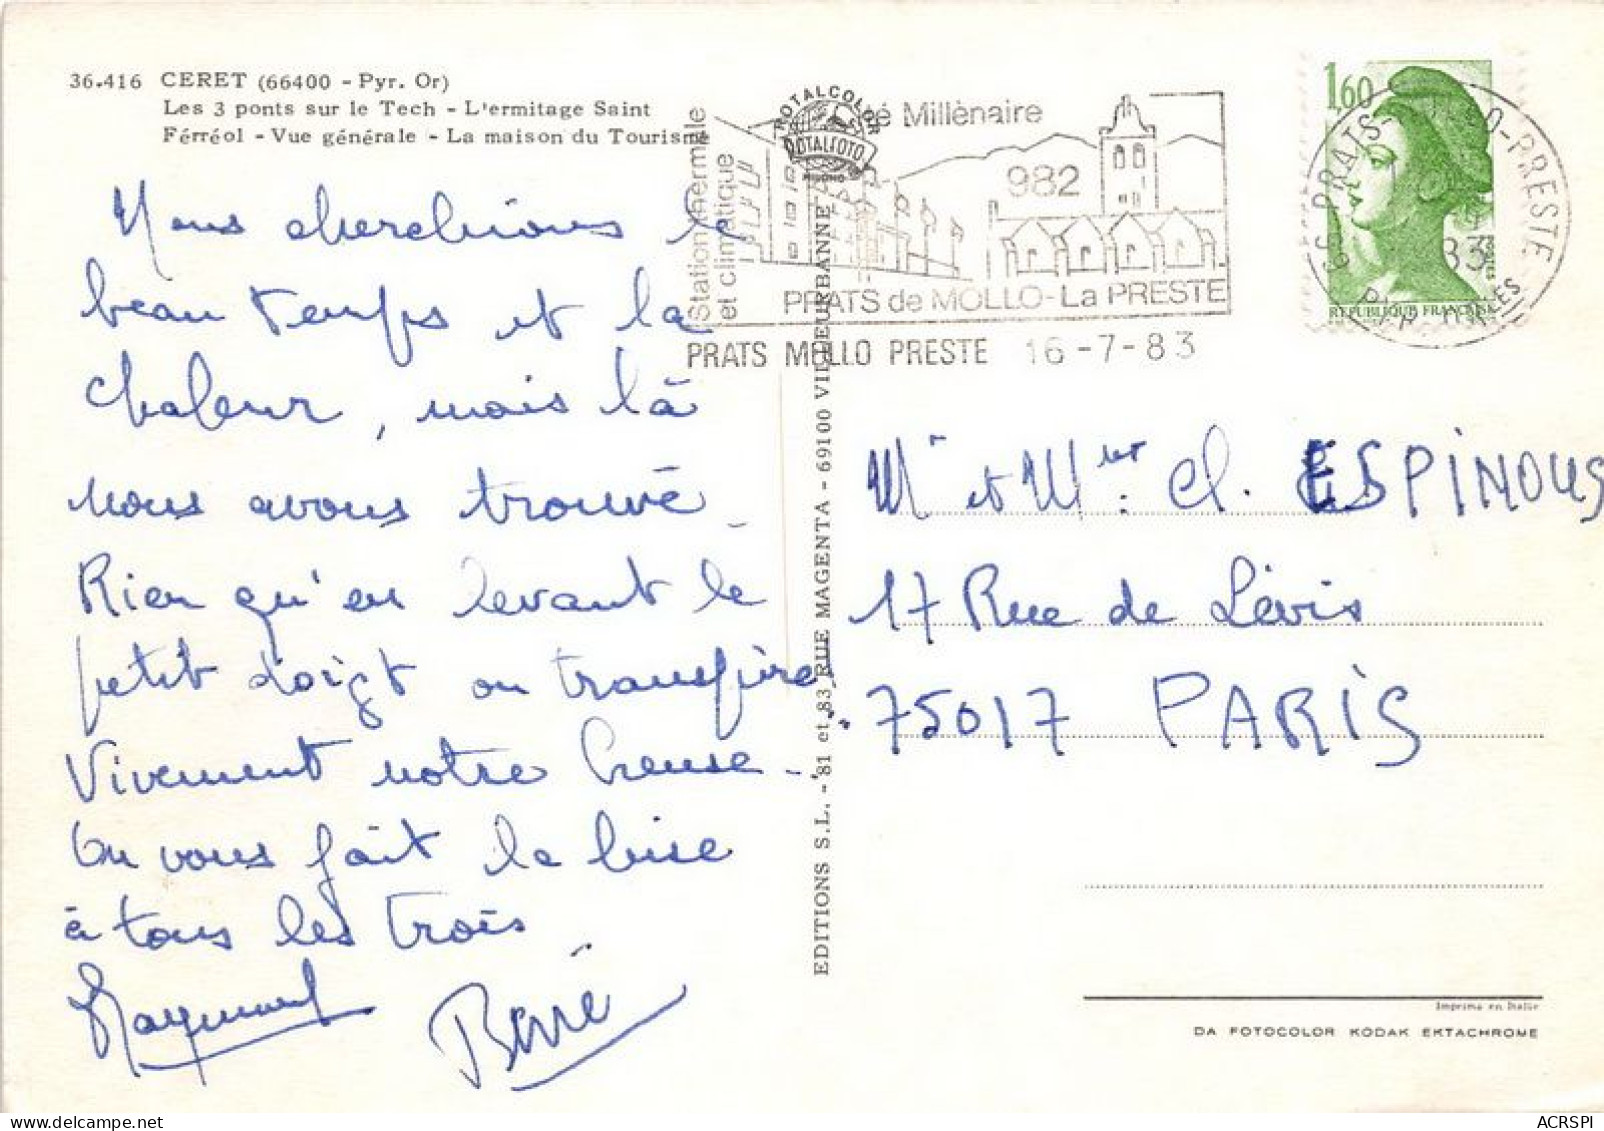 36.416 CERET (66400 - Pyr. Or)
Les 3 ponts sur le Tech - L'ermitage Saint
Férréol - Vue générale - La maison du Tourisme
Nous cherchions le
beau temps et la
chaleur, mais là
nous avons trouvé.
Rien qu'en levant le
petit doigt on transpire
Vivement notre Creuse.
On vous fait la bise
à tous les trois
Raymond
EDITIONS S.L. - 81 et 83, RUE MAGENTA - 69100 VILLEURBANNE
ROTALCOLOR
ROTALFOTO
MILANO
Station thermale
et climatique
Millénaire
982
PRATS de MOLLO-La PRESTE
PRATS MOLLO PRESTE 16-7-83
1,60
REPUBLIQUE FRANÇAISE
Mr et Mme Cl. ESPINOUS
17 Rue de Lévis
75017 PARIS
Imprima en Italie
DA FOTOCOLOR KODAK EKTACHROME
ACRSPI